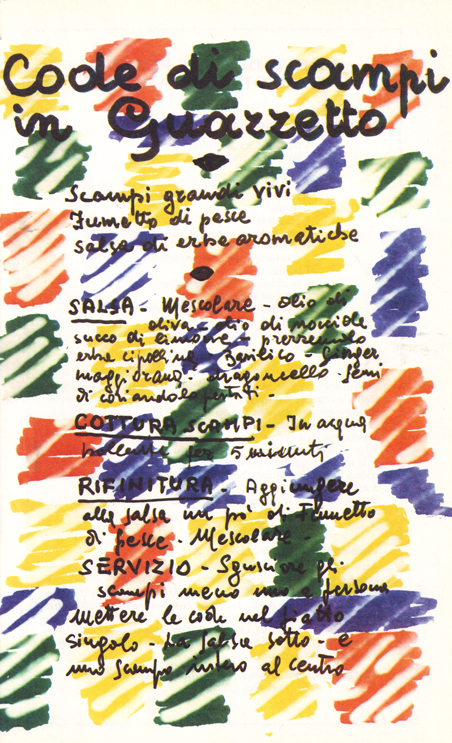 Code di scampi
in Guazzetto
Scampi grandi vivi
Fumetto di pesce
salsa di erbe aromatiche
SALSA - Mescolare - olio di
oliva - olio di nocciole
succo di limone - prezzemolo
erba cipollina - Basilico - Ginger
maggiorana - dragoncello - semi
di coriandolo pestati -
COTTURA SCAMPI - In acqua
bollente per 5 minuti
RIFINITURA - Aggiungere
alla salsa un pò di Fumetto
di pesce - Mescolare -
SERVIZIO - Sgusciare gli
scampi meno uno a persona
Mettere le code nel piatto
singolo - La salsa sotto - e
uno scampo intero al centro